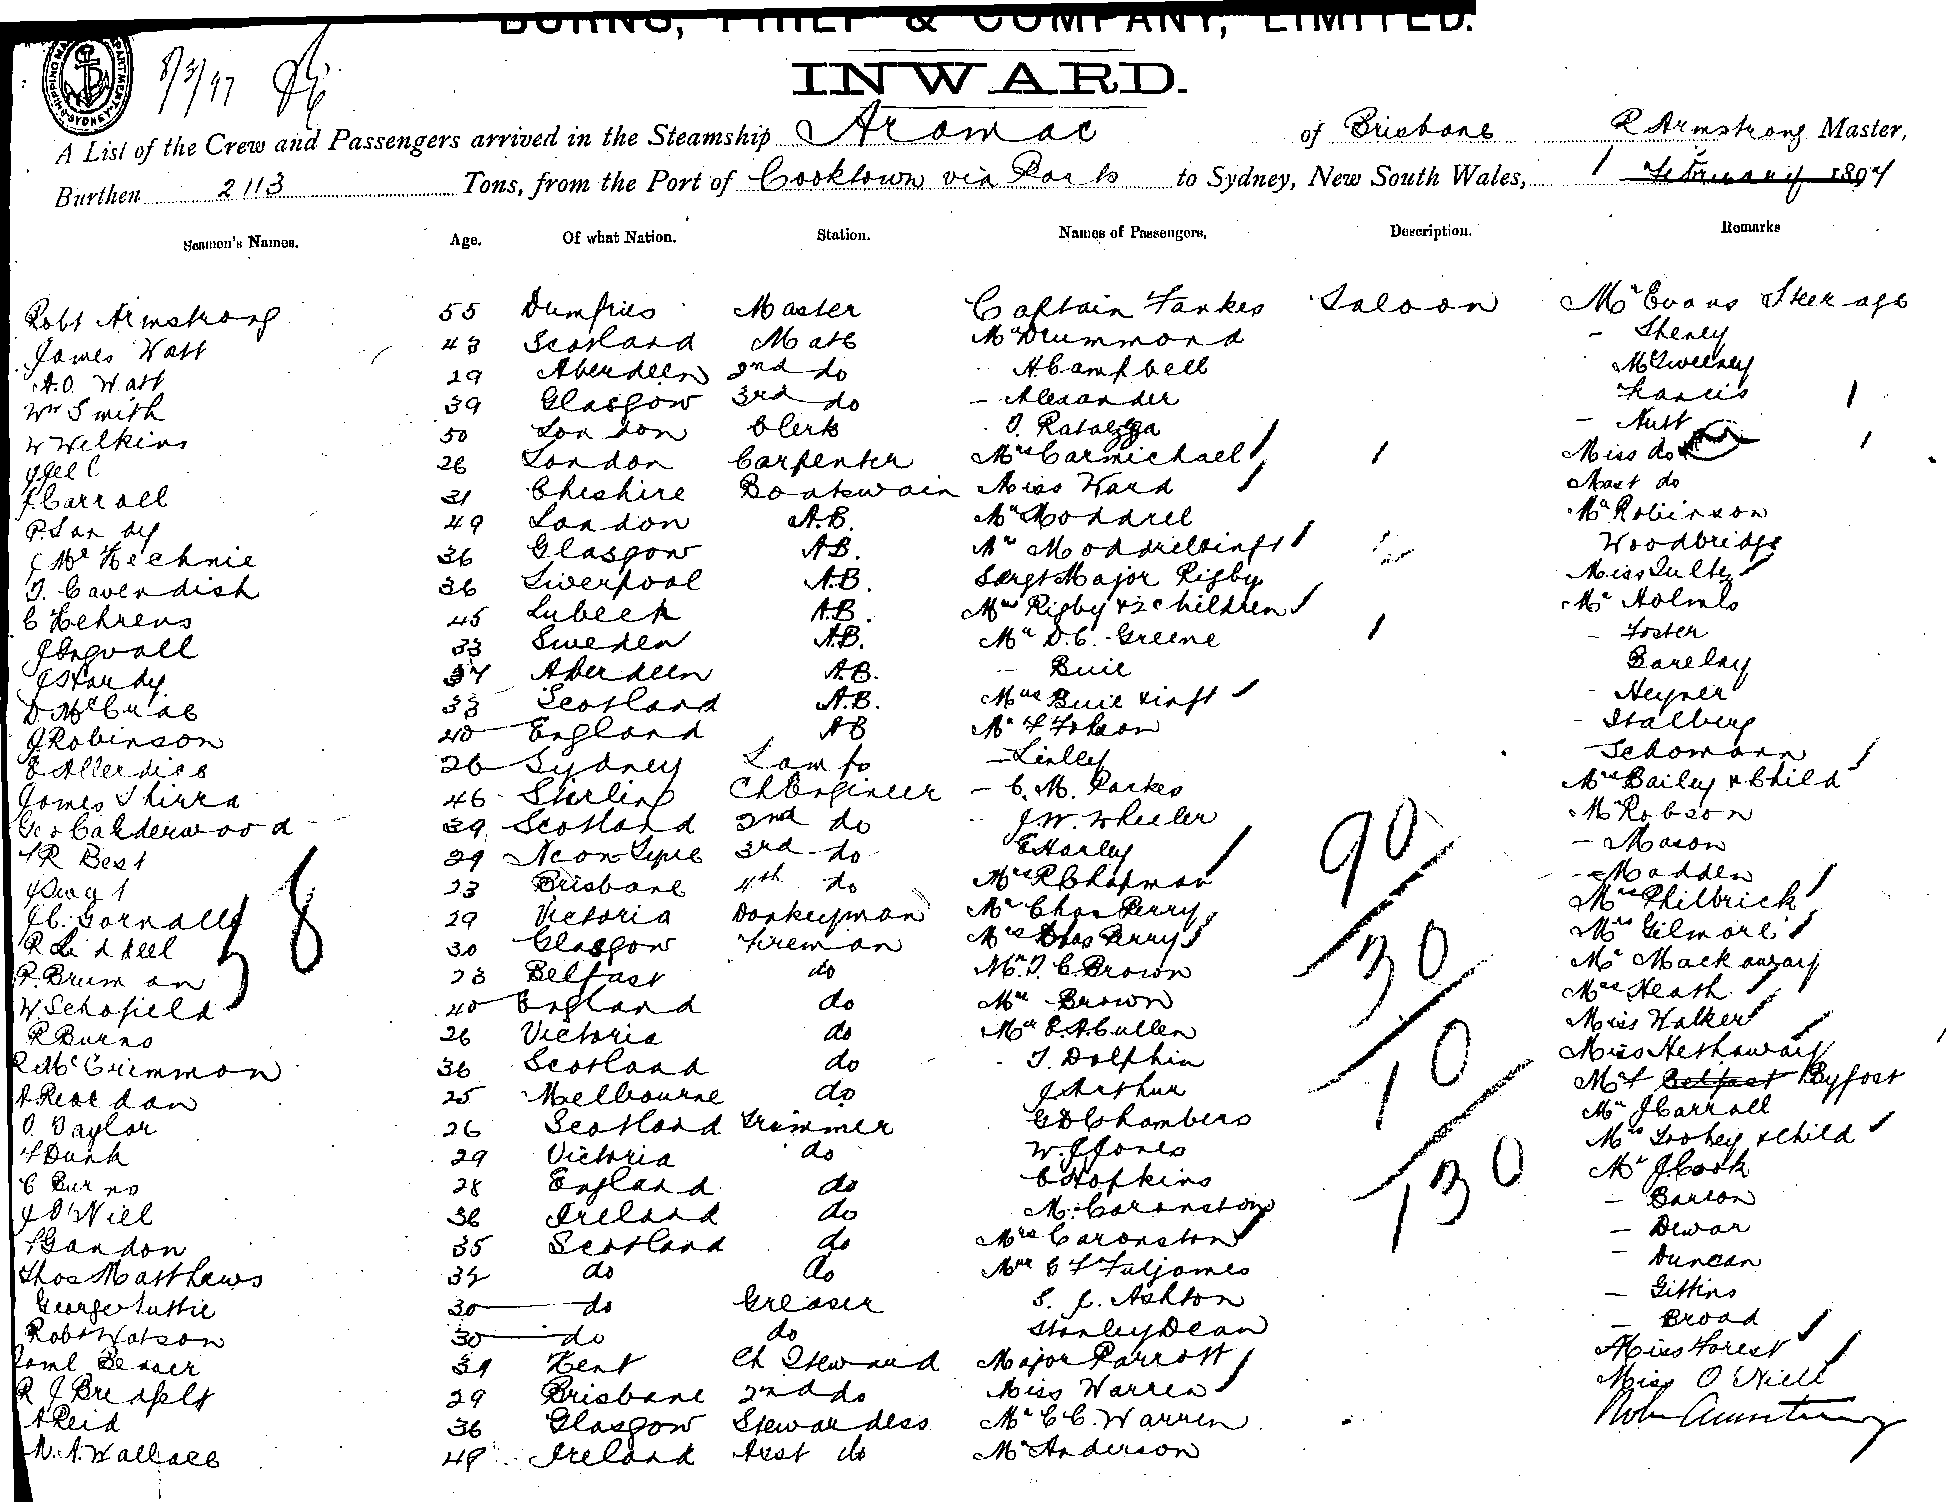 BURNS, PHILP & COMPANY, LIMITED.
INWARD.
8/3/97
A List of the Crew and Passengers arrived in the Steamship Aramac of Brisbane R Armstrong Master,
Burthen 2113 Tons, from the Port of Cooktown via Ports to Sydney, New South Wales, 1 February 1897
Seamen's Names. Age. Of what Nation. Station. Names of Passengers. Description. Remarks
Robt Armstrong 55 Dumfries Master Captain Fankes Saloon Mr Evans Steerage
James Watt 43 Scotland Mate Mr Drummond - Sheney
A.O. Watt 29 Aberdeen 2nd do A Campbell McSweeney
Wm Smith 39 Glasgow 3rd do - Alexander Francis
W Wilkins 50 London Clerk - Nutt
26 London Carpenter Mrs Carmichael Miss do
J Carroll 31 Cheshire Boatswain Miss Ward Mast do
P. Sandy 49 London A.B. Mr Moddrel Mr Robinson
J McKechnie 36 Glasgow A.B. Mrs Moddrel & inft Woodbridge
T. Cavendish 36 Liverpool A.B. Sergt Major Rigby Miss
C Behrens 45 Lubeck A.B. Mrs Rigby & 2 children Mr Holmes
J Engvall 33 Sweden A.B. Mr D.C. Greene - Foster
J Hardy 37 Aberdeen A.B. - Buie Barclay
D McCrae 33 Scotland A.B. Mrs Buie & inft - Heyner
J Robinson 40 England AB Mr F Folson - Stalberg
C Allerdice 26 Sydney Lamps - Linley - Schomann
James Shirra 46 Stirling Ch Engineer - C. M. Parkes Mrs Bailey & Child
Geo Calderwood 39 Scotland 2nd do - J.W. Wheeler Mr Robson
F R Best 29 3rd do E Harley - Mason
23 Brisbane 4th do Mrs R Chapman - Madden
J.C. Gornall 29 Victoria Donkeyman Mr Chas Perry Mrs Philbrick
R Liddell 30 Glasgow Fireman Mrs Chas Perry Mrs Gilmore
P. Bruman 23 Belfast do Mr T. C Brown Mr Mackaway
W. Schofield 40 England do Mr Brown Mrs Heath
R Burns 26 Victoria do Mr E.A. Cullen Miss Walker
R McCrimmon 36 Scotland do - T. Dolphin Miss Hethaway
A Reardan 25 Melbourne do J Arthur Mr F Belfast Byfost
O. Taylor 26 Scotland Trimmer G D Chambers Mr J Carroll
F Dunk 29 Victoria do W. J Jones Mrs Toohey & Child
C Burns 28 England do C Hopkins Mr J. Cook
J O'Niel 36 Ireland do M. Caronston - Barson
F Gandon 35 Scotland do Mrs Caronston - Dewar
Thos Matthews 34 do do Mr C F Fuljames - Duncan
George Suttie 30 do Greaser S. J. Ashton - Gittins
Robt Watson 30 do do Stanley Dean - Broad
Saml Besser 39 Kent Ch Steward Major Parrott Miss Forest
R J Bredfelt 29 Brisbane 2nd do Miss Warren Miss O'Niell
A Reid 36 Glasgow Stewardess Mr C C. Warren Robt Armstrong
M. A. Wallace 49 Ireland Asst do Mr Anderson
58
90
30
10
130